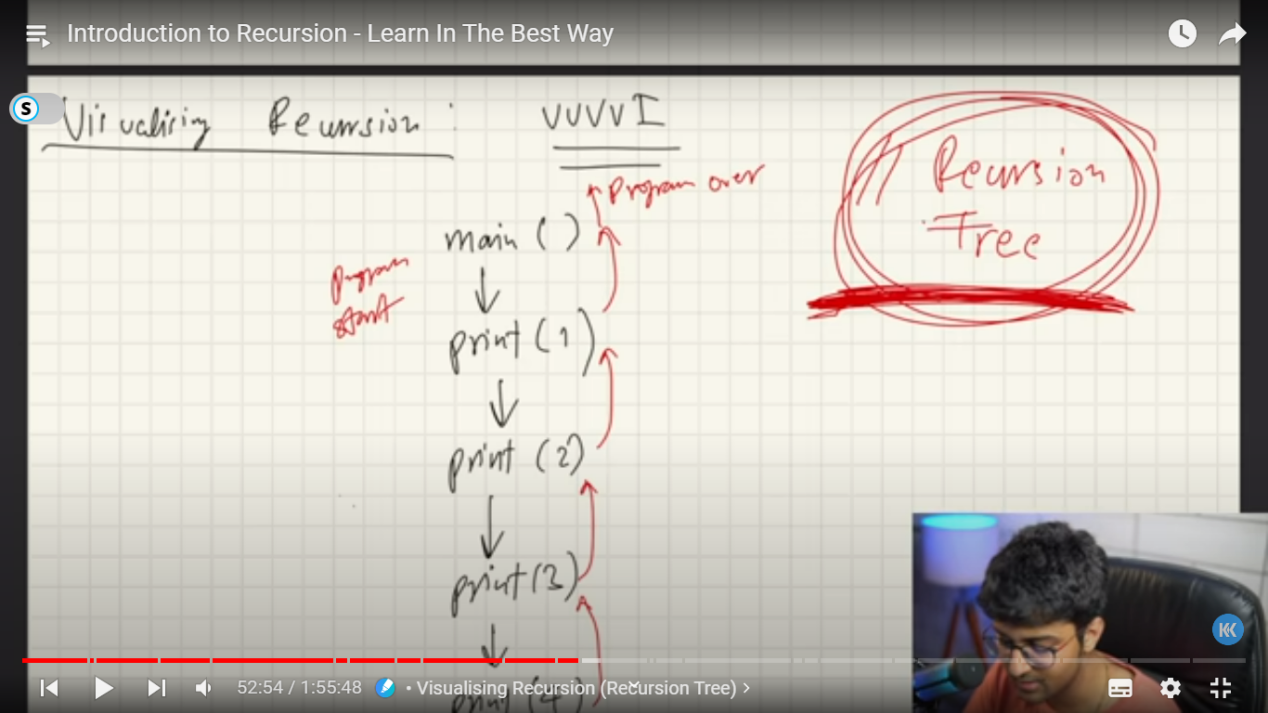 Introduction to Recursion - Learn In The Best Way
S
Visualising Recursion : VVVVI
Program over
Recursion
Tree
main ( )
Program
start
print (1)
print (2)
print (3)
print (4)
52:54 / 1:55:48 • Visualising Recursion (Recursion Tree) >
KK